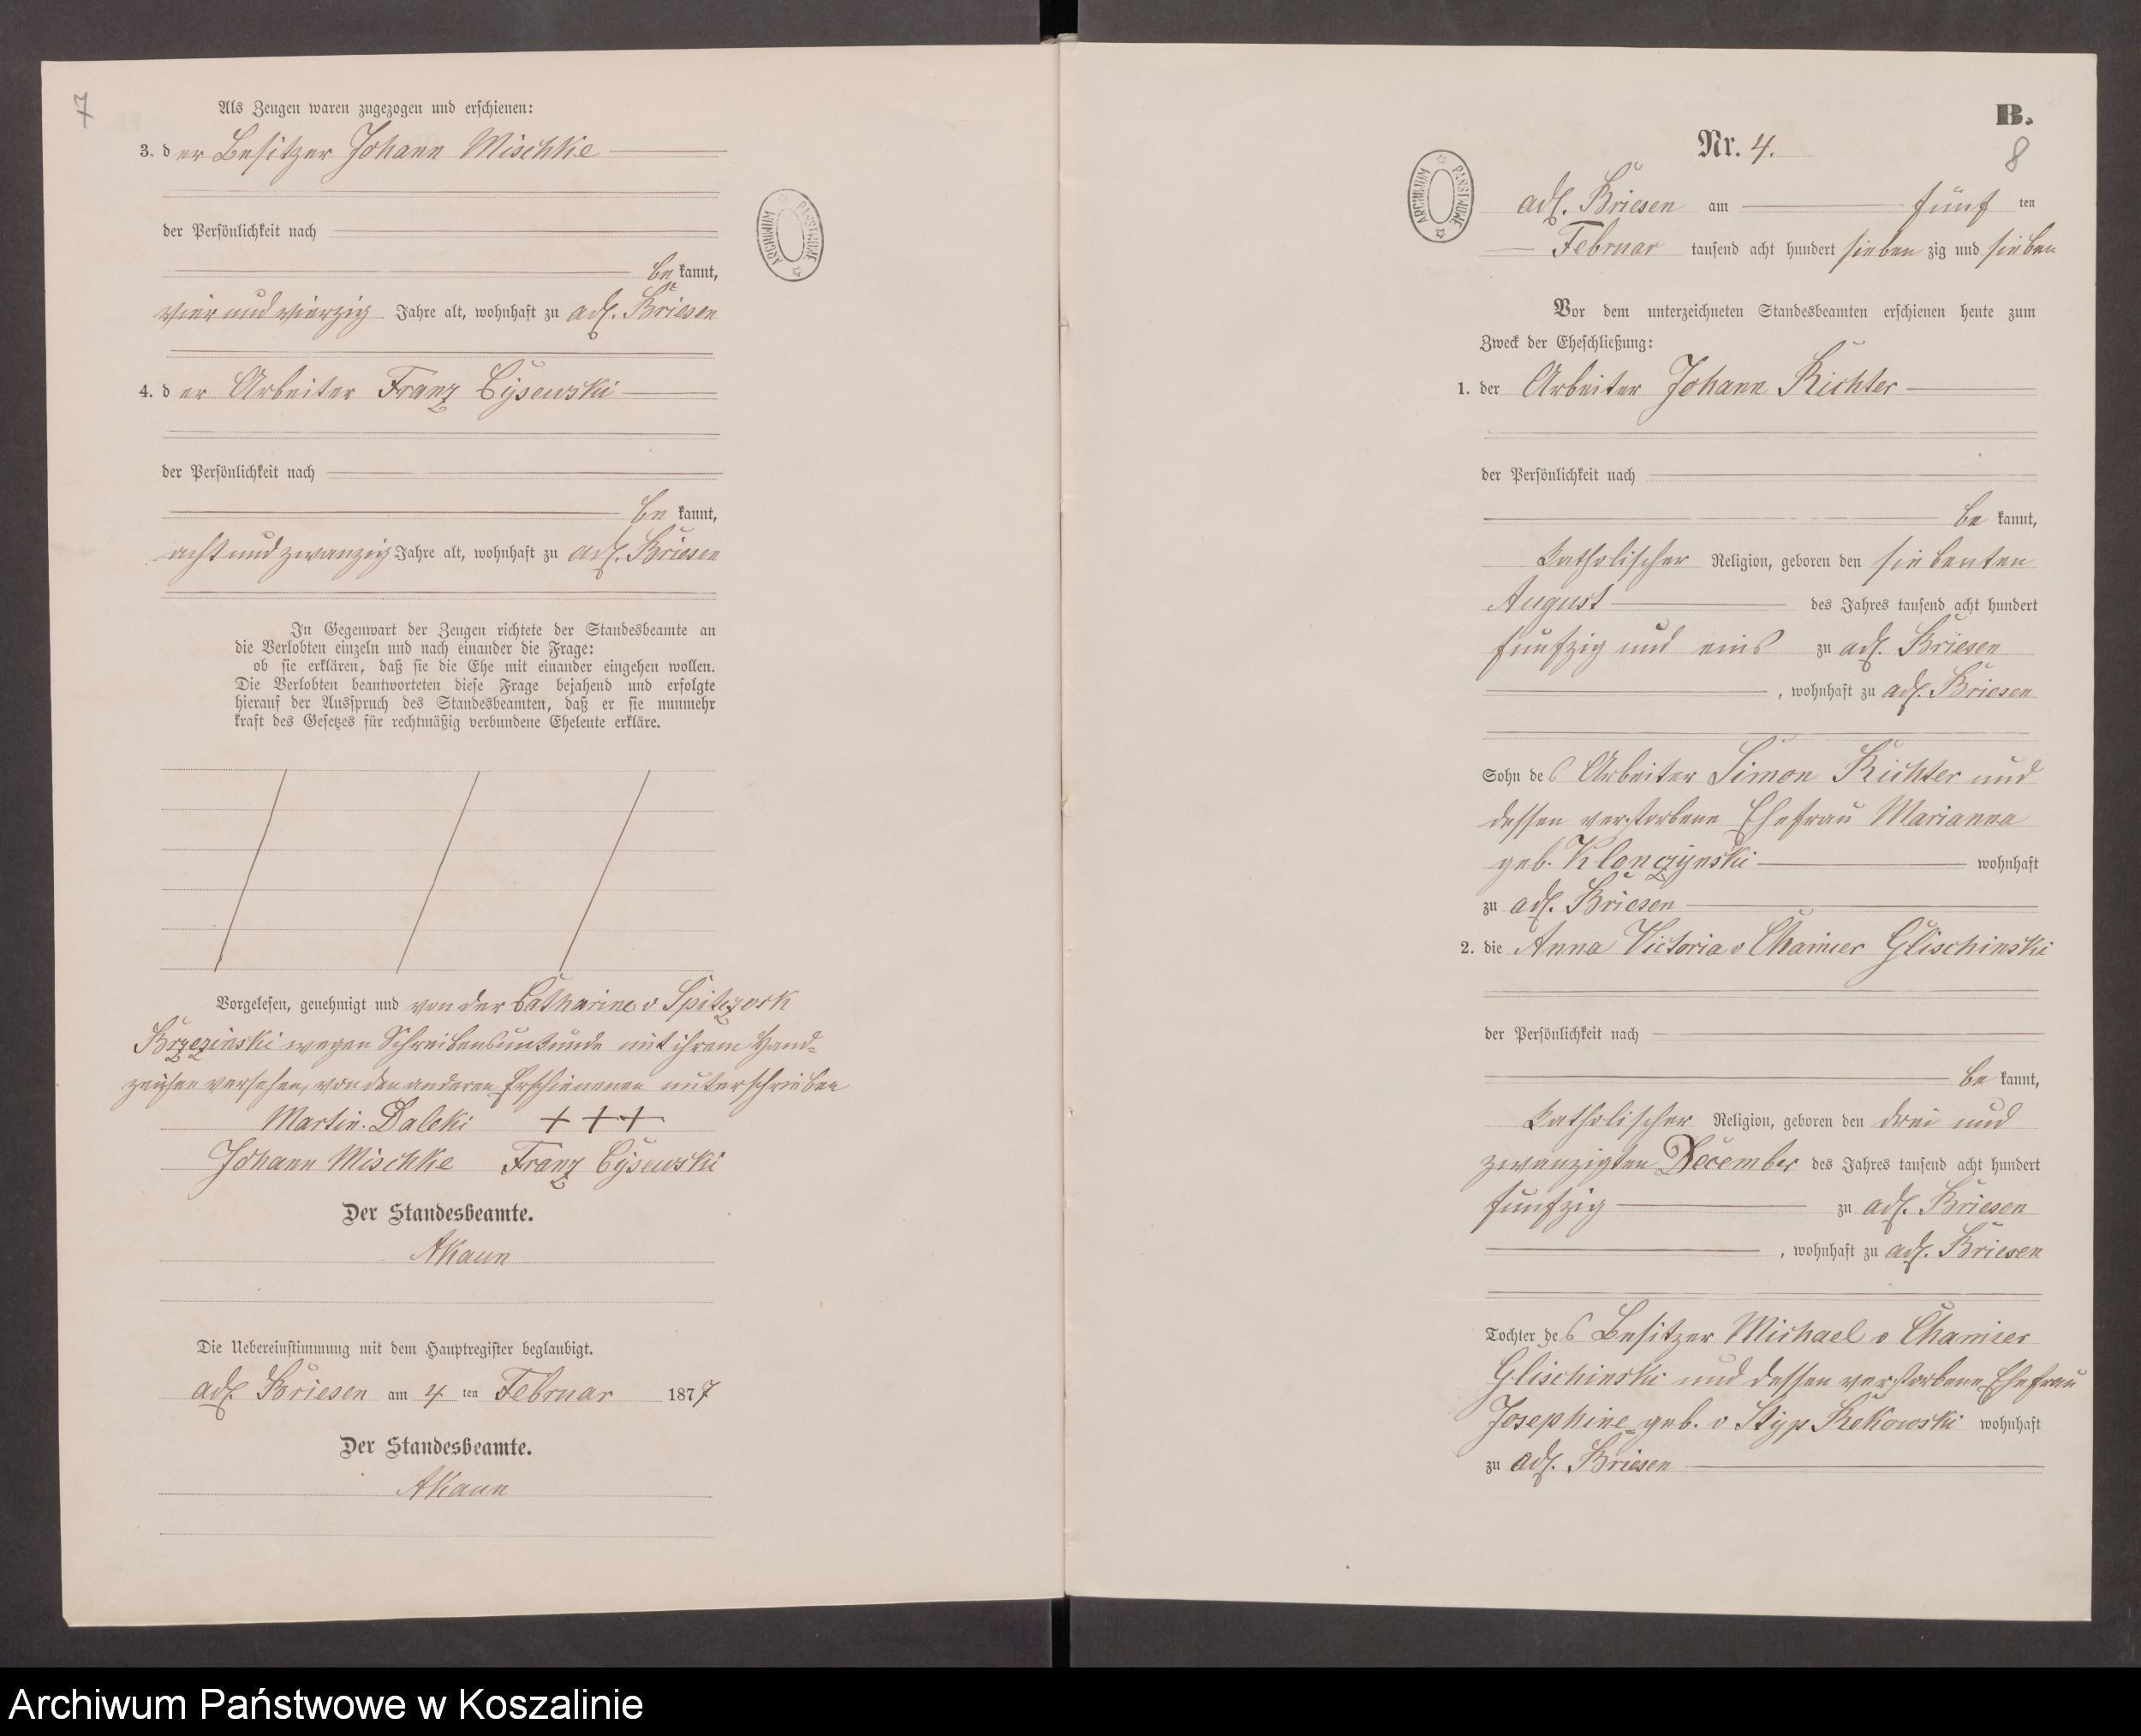 7
Als Zeugen waren zugezogen und erschienen:
3. der Besitzer Johann Mischke
der Persönlichkeit nach
bekannt,
vier und vierzig Jahre alt, wohnhaft zu adl. Briesen
4. der Arbeiter Franz Cysewski
der Persönlichkeit nach
bekannt,
acht und zwanzig Jahre alt, wohnhaft zu adl. Briesen
In Gegenwart der Zeugen richtete der Standesbeamte an
die Verlobten einzeln und nach einander die Frage:
ob sie erklären, daß sie die Ehe mit einander eingehen wollen.
Die Verlobten beantworteten diese Frage bejahend und erfolgte
hierauf der Ausspruch des Standesbeamten, daß er sie nunmehr
kraft des Gesetzes für rechtmäßig verbundene Eheleute erkläre.
Vorgelesen, genehmigt und von der Catharine v Spitczock
Brzezinski wegen Schreibensunkunde mit ihrem Hand=
zeichen versehen, von den anderen Erschienenen unterschrieben
Martin Daleki +++
Johann Mischke Franz Cysewski
Der Standesbeamte.
AKaun
Die Uebereinstimmung mit dem Hauptregister beglaubigt.
adl. Briesen am 4 ten Februar 1877
Der Standesbeamte.
AKaun
ARCHIWUM PAŃSTWOWE
B.
8
Nr. 4.
ARCHIWUM PAŃSTWOWE
adl. Briesen am fünf ten
Februar tausend acht hundert sieben zig und sieben
Vor dem unterzeichneten Standesbeamten erschienen heute zum
Zweck der Eheschließung:
1. der Arbeiter Johann Richter
der Persönlichkeit nach
bekannt,
katholischer Religion, geboren den siebenten
August des Jahres tausend acht hundert
funfzig und eins zu adl. Briesen
, wohnhaft zu adl. Briesen
Sohn des Arbeiter Simon Richter und
dessen verstorbene Ehefrau Marianna
geb. Klonczynski wohnhaft
zu adl. Briesen
2. die Anna Victoria v Chamier Glischinski
der Persönlichkeit nach
bekannt,
katholischer Religion, geboren den drei und
zwanzigten December des Jahres tausend acht hundert
funfzig zu adl. Briesen
, wohnhaft zu adl. Briesen
Tochter des Besitzer Michael v Chamier
Glischinski und dessen verstorbene Ehefrau
Josephine geb. v Styp Rekowski wohnhaft
zu adl. Briesen
Archiwum Państwowe w Koszalinie